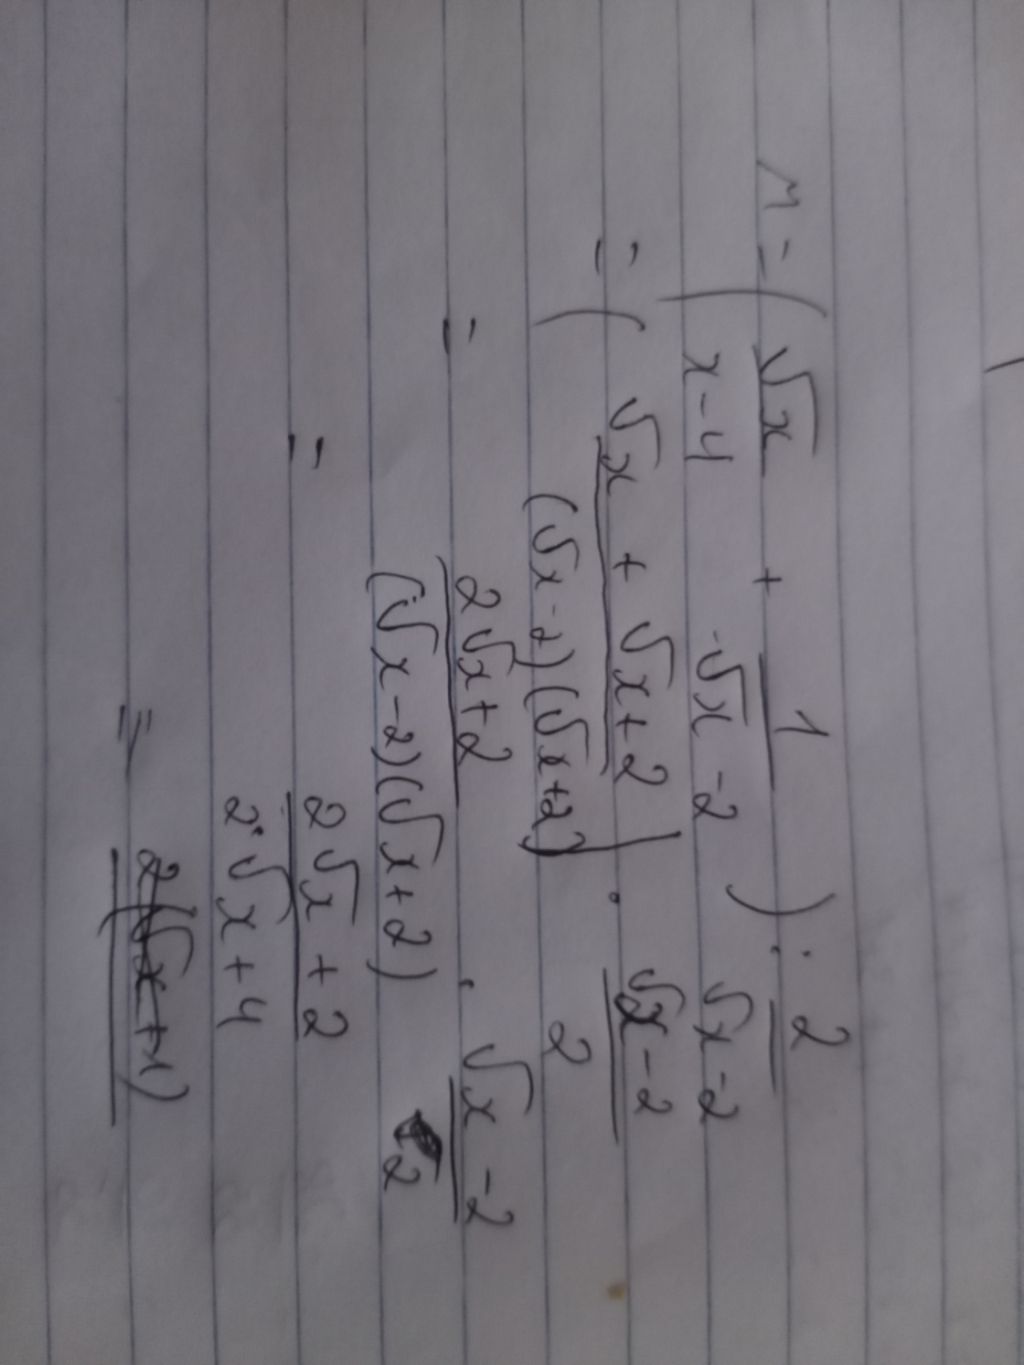 M = ( √x / x-4 + 1 / √x -2 ) : 2 / √x-2
= ( √x + √x+2 / (√x-2)(√x+2) ) . √x-2 / 2
= 2√x+2 / (√x-2)(√x+2) . √x-2 / 2
= 2√x+2 / 2√x+4
= 2(√x+1)